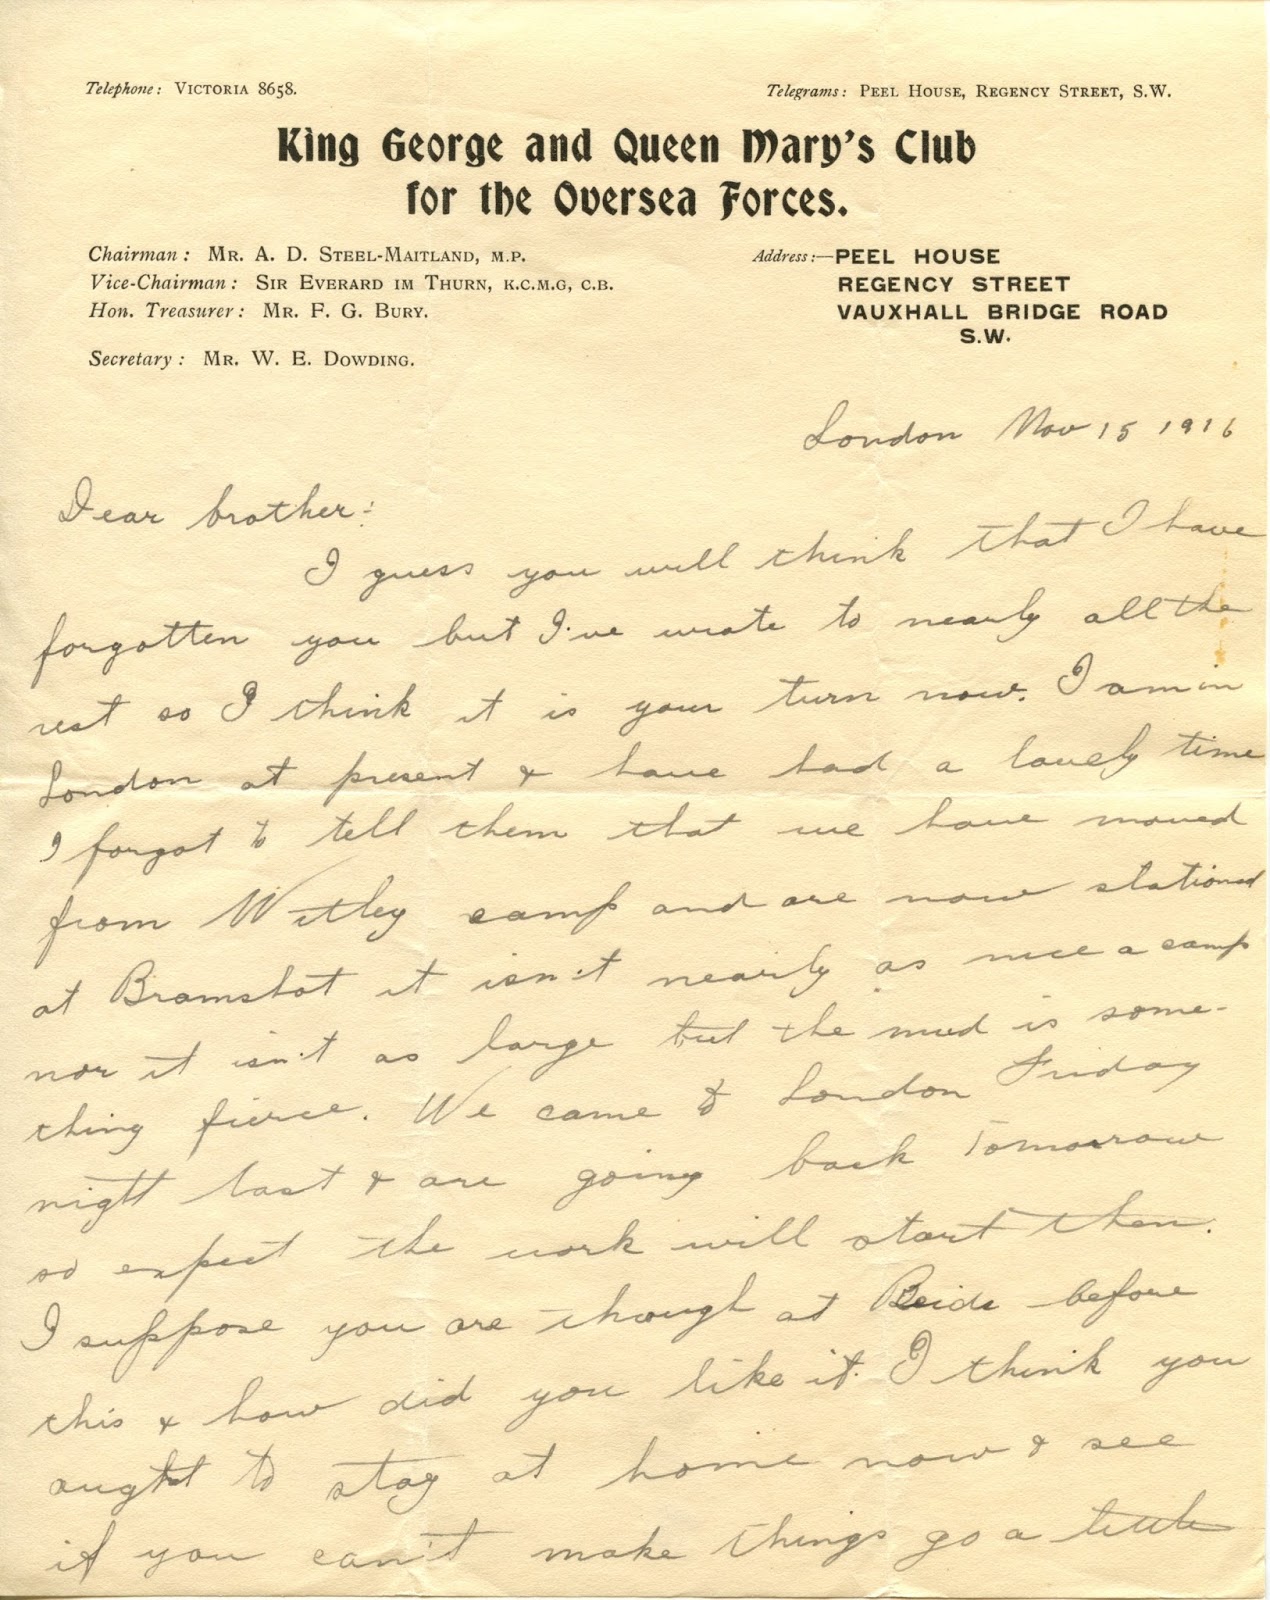 Telephone: VICTORIA 8658.
Telegrams: PEEL HOUSE, REGENCY STREET, S.W.
King George and Queen Mary's Club
for the Oversea Forces.
Chairman: MR. A. D. STEEL-MAITLAND, M.P.
Vice-Chairman: SIR EVERARD IM THURN, K.C.M.G, C.B.
Hon. Treasurer: MR. F. G. BURY.
Secretary: MR. W. E. DOWDING.
Address:—PEEL HOUSE
REGENCY STREET
VAUXHALL BRIDGE ROAD
S.W.
London Nov 15 1916
Dear brother:
I guess you will think that I have
forgotten you but I've wrote to nearly all the
rest so I think it is your turn now. I am in
London at present & have had a lovely time
I forgot to tell them that we have moved
from Witley camp and are now stationed
at Bramshot it isn't nearly as nice a camp
nor it isn't as large but the mud is some-
thing fierce. We came to London Friday
night last & are going back Tomorrow
so expect the work will start then.
I suppose you are through at before
this & how did you like it. I think you
aught to stay at home now & see
if you can't make things go a little